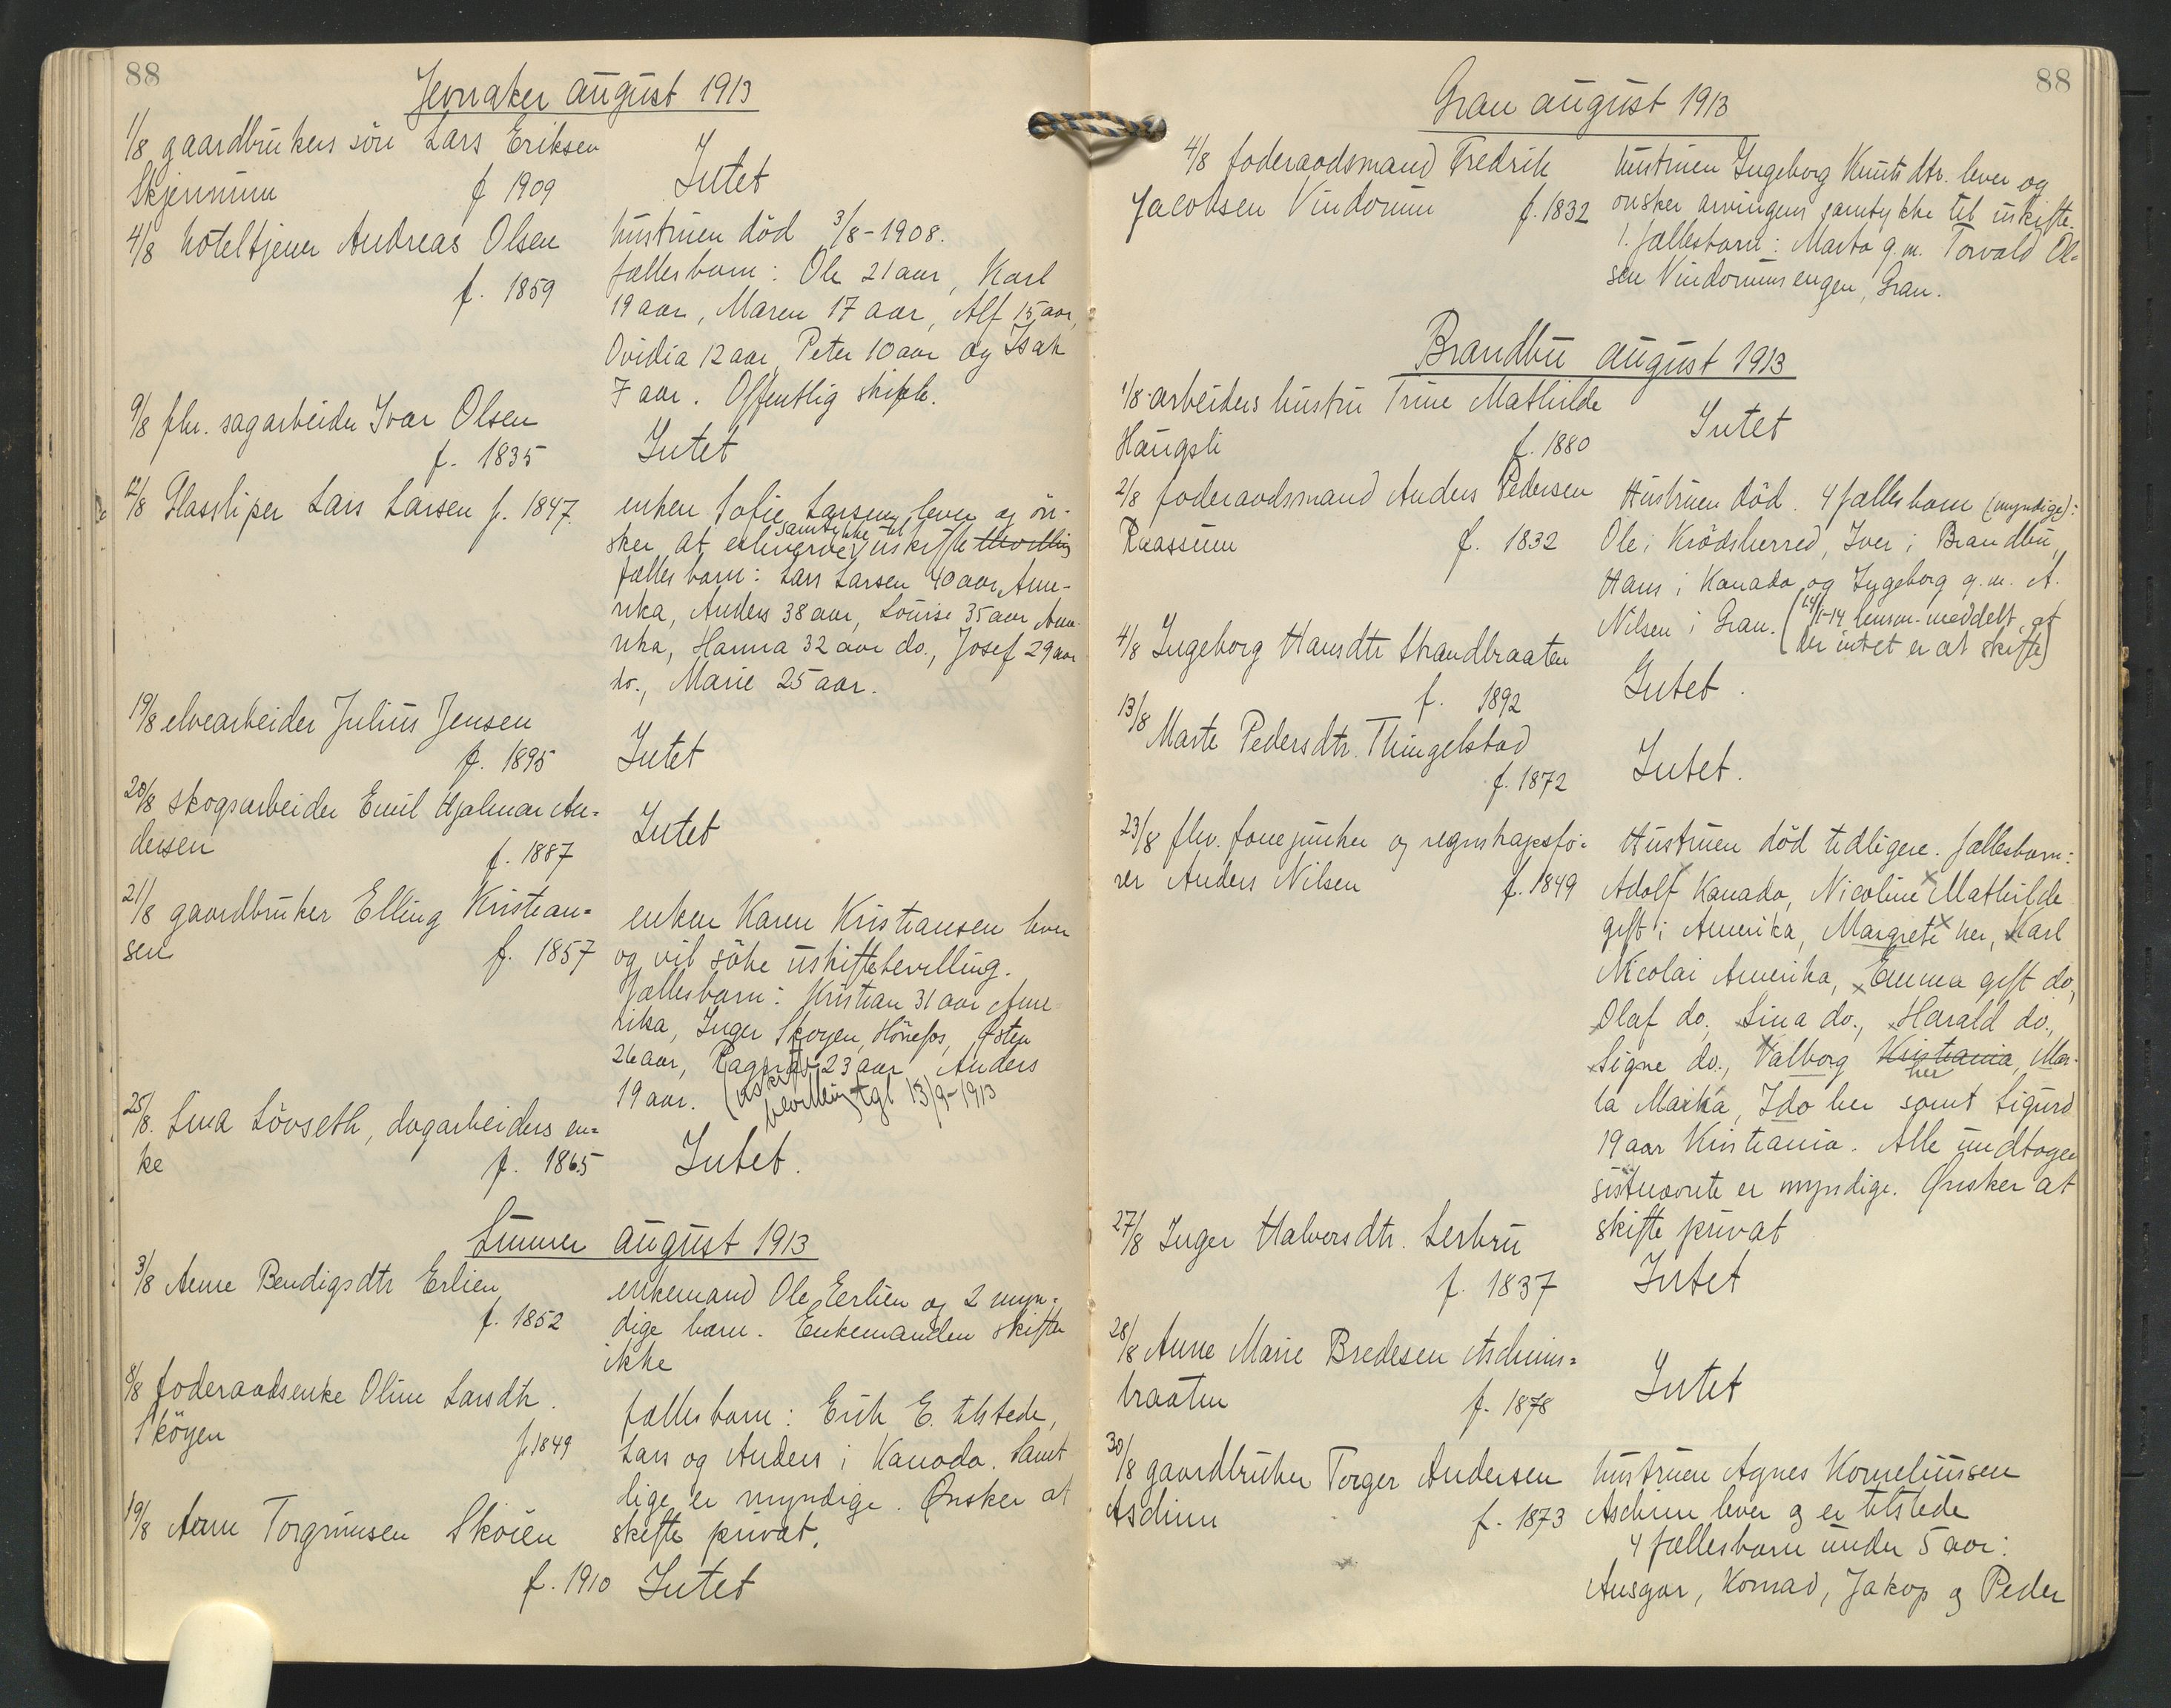 88
Jevnaker august 1913
1/8 gaardbrukers sön Lars Eriksen
Skjervum f 1909
Intet
4/8 hoteltjener Andreas Olsen
f. 1859
hustruen död 3/8-1908.
fællesbarn: Ole 21 aar, Karl
19 aar, Maren 17 aar, Alf 15 aar,
Ovidia 12 aar, Peter 10 aar og Isak
7 aar. Offentlig skifte.
9/8 fhv. sagarbeider Ivar Olsen
f. 1835
Intet
12/8 Glassliper Lars Larsen f. 1847.
enken Sofie Larsen lever og ön-
sker at erhverve samtykke til uskifte bevilling
fællesbarn: Lars Larsen 40 aar, Ame-
rika, Anders 38 aar, Louise 35 aar Ame-
rika, Hanna 32 aar do., Josef 29 aar
do., Marie 25 aar.
19/8 elvearbeider Julius Jensen
f. 1895
Intet
20/8 skogsarbeider Emil Hjalmar An-
dersen f. 1887
Intet
21/8 gaardbruker Elling Kristian-
sen f. 1857
enken Karen Kristiansen lever
og vil söke uskiftebevilling.
Fællesbarn: Kristian 31 aar Ame-
rika, Inger Skogen, Hönefos, Østen
26 aar, Ragna 23 aar Anders
19 aar. (uskifte
bevilling tgl 13/9-1913
25/8. Lina Lövseth, dagarbeiders en-
ke f. 1865
Intet.
Lunner august 1913
3/8 Anne Bendigsdtr Erlien
f. 1852
enkemand Ole Eerlien og 2 myn-
dige barn. Enkemanden skifter
ikke
8/8 foderaadsenke Oline Larsdtr.
Sköyen f. 1849
fællesbarn: Erik E. tilstede,
Lars og Anders i Kanada. Samt-
lige er myndige. Ønsker at
skifte privat.
19/8 Arne Torgrimsen Sköien
f. 1910
Intet
88
Gran august 1913
4/8 foderaadsmand Fredrik
Jacobsen Vindorum f. 1832
hustruen Ingeborg Knutsdtr. lever og
ønsker arvingens samtykke til uskifte.
1. fællesbarn: Marta g.m. Torvald Ol-
sen Vindorumsengen, Gran.
Brandbu august 1913
1/8 arbeiders hustru Trine Mathilde
Haugsli f. 1880
Intet
2/8 foderaadsmand Anders Pedersen
Raassum f. 1832
Hustruen död. 4 fællesbarn (myndige):
Ole i Krödsherred, Iver i Brandbu,
Hans i Kanada og Ingeborg g.m. A.
Nilsen i Gran. (14/1-14 lensm. meddelt, at
der intet er at skifte)
4/8 Ingeborg Hansdtr Strandbraaten
f. 1892
Intet.
13/8 Marte Pedersdtr. Thingelstad
f. 1872
Intet.
23/8 fhv. fanejunker og regnskapsfö-
rer Anders Nilsen f. 1849
Hustruen död tidligere. Fællesbarn:
Adolf Kanada, Nicoline Mathilde
gift i Amerika, Margrete her, Karl
Nicolai Amerika, Emma gift do,
Olaf do., Lina do., Harald do.,
Signe do., Valborg Kristiania her, Mar-
ta Maria, Ida her samt Sigurd
19 aar Kristiania. Alle undtagen
sistnævnte er myndige. Ønsker at
skifte privat
27/8 Inger Halvorsdtr. Lerbru
f. 1837
Intet
28/8 Anne Marie Bredesen Aschims-
braaten f. 1878
Intet
30/8 gaardbruker Torger Andersen
Aschim f. 1873
hustruen Agnes Korneliussen
Aschim lever og er tilstede
4 fællesbarn under 5 aar:
Ansgar, Konrad, Jakop og Peder